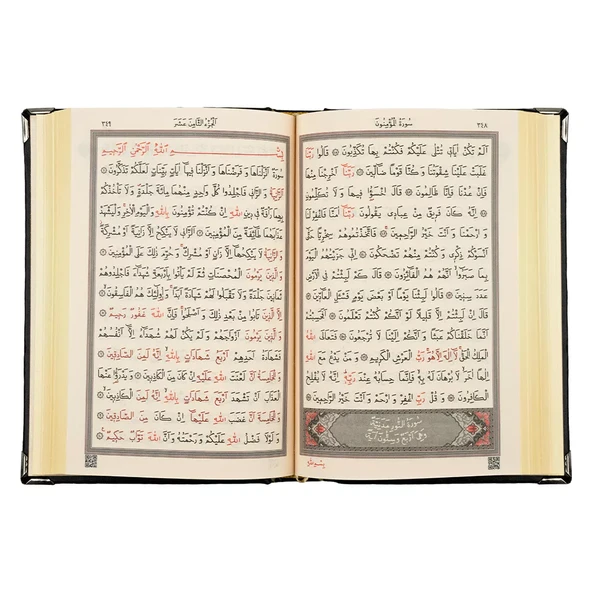 سورة المؤمنون ٣٤٨
اَلَمْ تَكُنْ اٰيَاتِي تُتْلٰى عَلَيْكُمْ فَكُنْتُمْ بِهَا تُكَذِّبُونَ ۞ قَالُوا رَبَّنَا
غَلَبَتْ عَلَيْنَا شِقْوَتُنَا وَكُنَّا قَوْمًا ضَالِّينَ ۞ رَبَّنَا اَخْرِجْنَا مِنْهَا
فَاِنْ عُدْنَا فَاِنَّا ظَالِمُونَ ۞ قَالَ اخْسَؤُا فِيهَا وَلَا تُكَلِّمُونِ
۞ اِنَّهُ كَانَ فَرِيقٌ مِنْ عِبَادِي يَقُولُونَ رَبَّنَا اٰمَنَّا فَاغْفِرْ لَنَا
وَارْحَمْنَا وَاَنْتَ خَيْرُ الرَّاحِمِينَ ۞ فَاتَّخَذْتُمُوهُمْ سِخْرِيًّا حَتّٰى
اَنْسَوْكُمْ ذِكْرِي وَكُنْتُمْ مِنْهُمْ تَضْحَكُونَ ۞ اِنِّي جَزَيْتُهُمُ الْيَوْمَ
بِمَا صَبَرُوا اَنَّهُمْ هُمُ الْفَائِزُونَ ۞ قَالَ كَمْ لَبِثْتُمْ فِي الْاَرْضِ
عَدَدَ سِنِينَ ۞ قَالُوا لَبِثْنَا يَوْمًا اَوْ بَعْضَ يَوْمٍ فَسْـَٔلِ الْعَادِّينَ
۞ قَالَ اِنْ لَبِثْتُمْ اِلَّا قَلِيلًا لَوْ اَنَّكُمْ كُنْتُمْ تَعْلَمُونَ ۞ اَفَحَسِبْتُمْ
اَنَّمَا خَلَقْنَاكُمْ عَبَثًا وَاَنَّكُمْ اِلَيْنَا لَا تُرْجَعُونَ ۞ فَتَعَالَى اللّٰهُ
الْمَلِكُ الْحَقُّ لَا اِلٰهَ اِلَّا هُوَ رَبُّ الْعَرْشِ الْكَرِيمِ ۞ وَمَنْ يَدْعُ مَعَ اللّٰهِ
اِلٰهًا اٰخَرَ لَا بُرْهَانَ لَهُ بِهِ فَاِنَّمَا حِسَابُهُ عِنْدَ رَبِّهِ اِنَّهُ لَا يُفْلِحُ
الْكَافِرُونَ ۞ وَقُلْ رَبِّ اغْفِرْ وَارْحَمْ وَاَنْتَ خَيْرُ الرَّاحِمِينَ ۞
سورة النور مدنية
وهى اربع وستون آية
الجزء الثامن عشر ٣٤٩
بِسْمِ اللّٰهِ الرَّحْمٰنِ الرَّحِيمِ
سُورَةٌ اَنْزَلْنَاهَا وَفَرَضْنَاهَا وَاَنْزَلْنَا فِيهَا اٰيَاتٍ بَيِّنَاتٍ لَعَلَّكُمْ تَذَكَّرُونَ ۞
اَلزَّانِيَةُ وَالزَّانِي فَاجْلِدُوا كُلَّ وَاحِدٍ مِنْهُمَا مِائَةَ جَلْدَةٍ وَلَا تَأْخُذْكُمْ
بِهِمَا رَأْفَةٌ فِي دِينِ اللّٰهِ اِنْ كُنْتُمْ تُؤْمِنُونَ بِاللّٰهِ وَالْيَوْمِ الْاٰخِرِ وَلْيَشْهَدْ
عَذَابَهُمَا طَائِفَةٌ مِنَ الْمُؤْمِنِينَ ۞ اَلزَّانِي لَا يَنْكِحُ اِلَّا زَانِيَةً اَوْ مُشْرِكَةً
وَالزَّانِيَةُ لَا يَنْكِحُهَا اِلَّا زَانٍ اَوْ مُشْرِكٌ وَحُرِّمَ ذٰلِكَ عَلَى الْمُؤْمِنِينَ
۞ وَالَّذِينَ يَرْمُونَ الْمُحْصَنَاتِ ثُمَّ لَمْ يَأْتُوا بِاَرْبَعَةِ شُهَدَاءَ فَاجْلِدُوهُمْ
ثَمَانِينَ جَلْدَةً وَلَا تَقْبَلُوا لَهُمْ شَهَادَةً اَبَدًا وَاُولٰئِكَ هُمُ الْفَاسِقُونَ ۞
اِلَّا الَّذِينَ تَابُوا مِنْ بَعْدِ ذٰلِكَ وَاَصْلَحُوا فَاِنَّ اللّٰهَ غَفُورٌ رَحِيمٌ ۞
وَالَّذِينَ يَرْمُونَ اَزْوَاجَهُمْ وَلَمْ يَكُنْ لَهُمْ شُهَدَاءُ اِلَّا اَنْفُسُهُمْ
فَشَهَادَةُ اَحَدِهِمْ اَرْبَعُ شَهَادَاتٍ بِاللّٰهِ اِنَّهُ لَمِنَ الصَّادِقِينَ ۞
وَالْخَامِسَةُ اَنَّ لَعْنَتَ اللّٰهِ عَلَيْهِ اِنْ كَانَ مِنَ الْكَاذِبِينَ ۞ وَيَدْرَؤُا عَنْهَا
الْعَذَابَ اَنْ تَشْهَدَ اَرْبَعَ شَهَادَاتٍ بِاللّٰهِ اِنَّهُ لَمِنَ الْكَاذِبِينَ ۞
وَالْخَامِسَةَ اَنَّ غَضَبَ اللّٰهِ عَلَيْهَا اِنْ كَانَ مِنَ الصَّادِقِينَ ۞
وَلَوْلَا فَضْلُ اللّٰهِ عَلَيْكُمْ وَرَحْمَتُهُ وَاَنَّ اللّٰهَ تَوَّابٌ حَكِيمٌ ۞